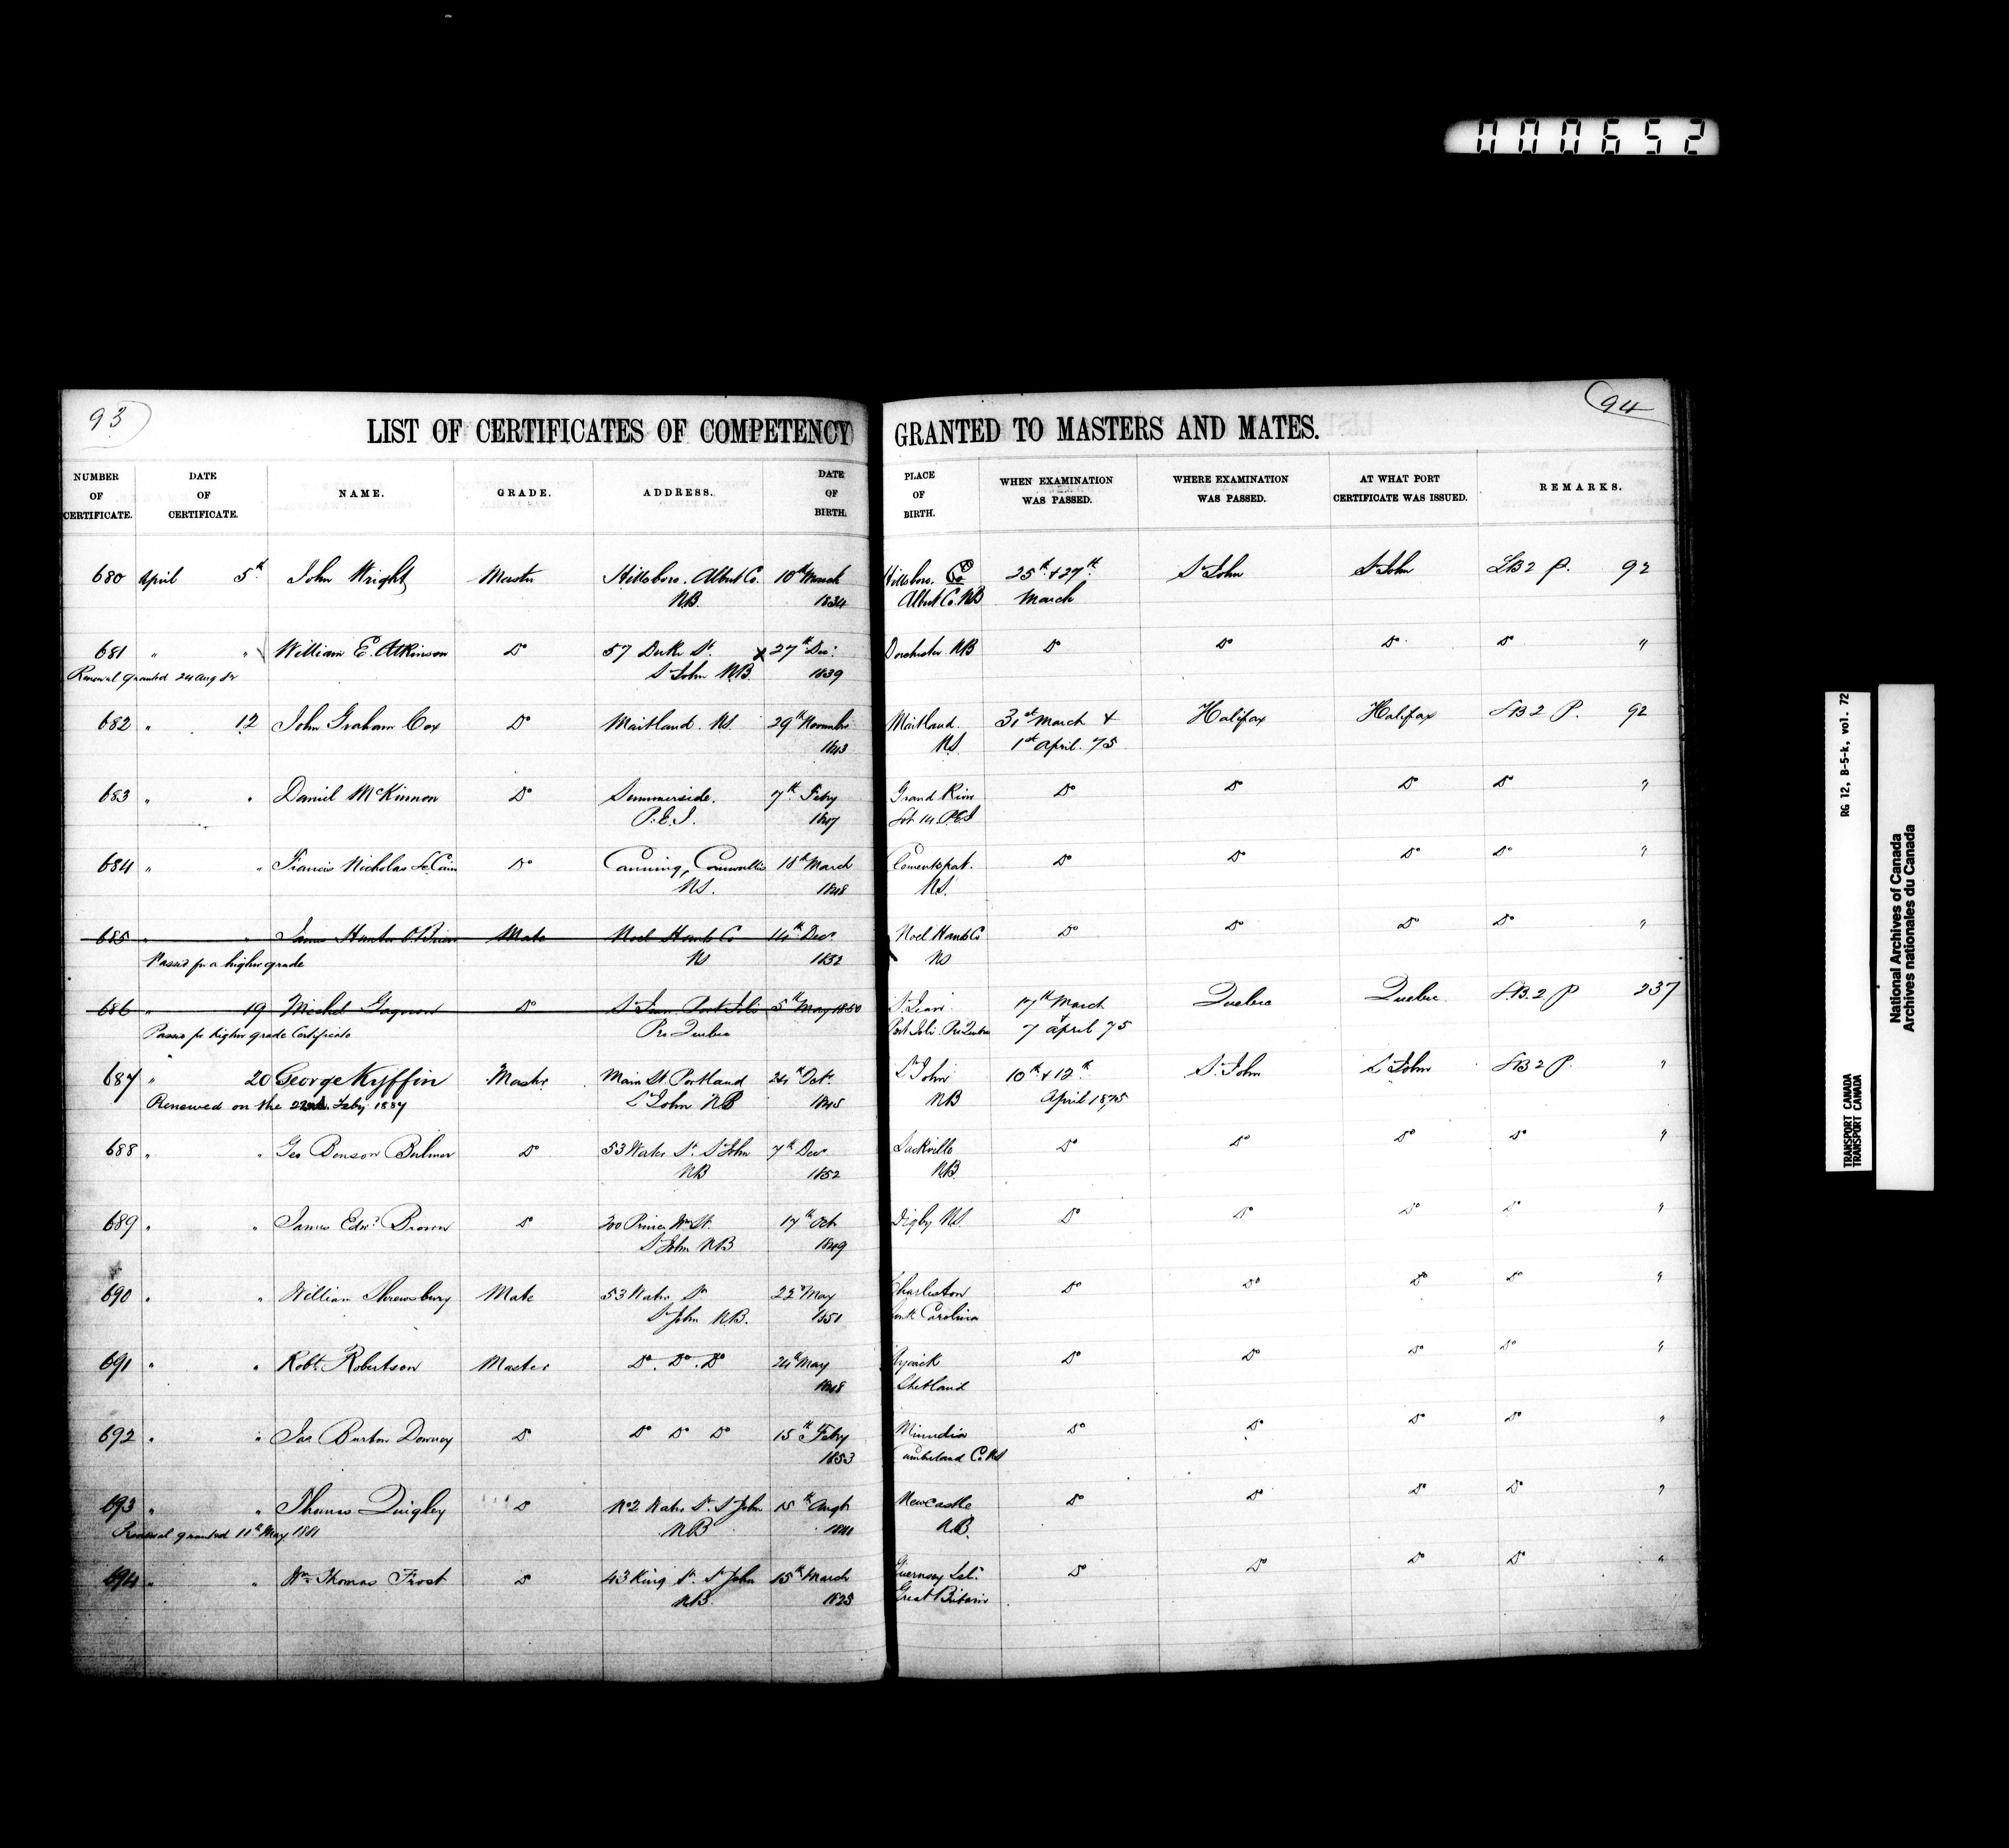 000652
93
94
LIST OF CERTIFICATES OF COMPETENCY GRANTED TO MASTERS AND MATES.
NUMBER OF CERTIFICATE. DATE OF CERTIFICATE. NAME. GRADE. ADDRESS. DATE OF BIRTH. PLACE OF BIRTH. WHEN EXAMINATION WAS PASSED. WHERE EXAMINATION WAS PASSED. AT WHAT PORT CERTIFICATE WAS ISSUED. REMARKS.
680 April 5th John Wright Master Hillsboro. Albert Co. 10th March Hillsboro. Co 25th & 27th St John St John LB 2 P. 92
NB. 1834 Albert Co. NB March
681 " " William E. Atkinson Do 57 Duke St. x 27th Dec. Dorchester NB Do Do Do Do "
Renewal granted 24 Aug St John NB. 1839
682 " 12 John Graham Cox Do Maitland. NS. 29th November Maitland 31st March & Halifax Halifax LB 2 P. 92
1843 NS. 1st April. 75
683 " " Daniel McKinnon Do Summerside. 7th Feby Grand River Do Do Do Do "
P.E.I. 1847 Lot 14 P.E.I
684 " " Francis Nicholas Do Canning, Cornwallis 18th March Do Do Do Do "
NS. 1848 NS.
685 " " James Hunter O'Brien Mate Noel Hants Co 14th Decr Noel Hants Co Do Do Do Do "
Passed for a higher grade NS 1852 NS
686 " 19 Michel Gagnon Do St Jean Port Joli 5th May 1850 St Jean 17th March Quebec Quebec L.B. 2 P 237
Passed for higher grade Certificate Pro Quebec Port Joli. Pro Quebec & 7 April 75
687 " 20 George Kyffin Master Main St. Portland 24th Oct. St John 10th & 12th St. John St John LB 2 P. "
Renewed on the 22nd. Feby 1887 St John NB 1845 NB April 1875
688 " " Geo Benson Bulmer Do 53 Water St. St John 7th Decr Sackville Do Do Do Do "
NB 1852 NB.
689 " " James Edwd Brown Do 200 Prince Wm St. 17th Oct Digby NS. Do Do Do Do "
St John NB 1849
690 " " William Shrewsbury Mate 53 Water St 22d May Charleston Do Do Do Do "
St John N.B. 1851 South Carolina
691 " " Robt. Robertson Master Do. Do. Do 24th May Do Do Do Do "
1848 Shetland
692 " " Jas Burton Downey Do Do Do Do 15th Feby Minudie Do Do Do Do "
1853 Cumberland Co. NS
693 " " Thomas Quigley Do No 2 Water St. St John 15th Augt Newcastle Do Do Do Do "
Renewal granted 11th May 1881 NB N.B.
694 " " Wm Thomas Frost Do 43 King St. St John 15th March Guernsey Isl. Do Do Do Do "
NB. 1825 Great Britain
RG 12, B-5-k, vol. 72
TRANSPORT CANADA
TRANSPORT CANADA
National Archives of Canada
Archives nationales du Canada